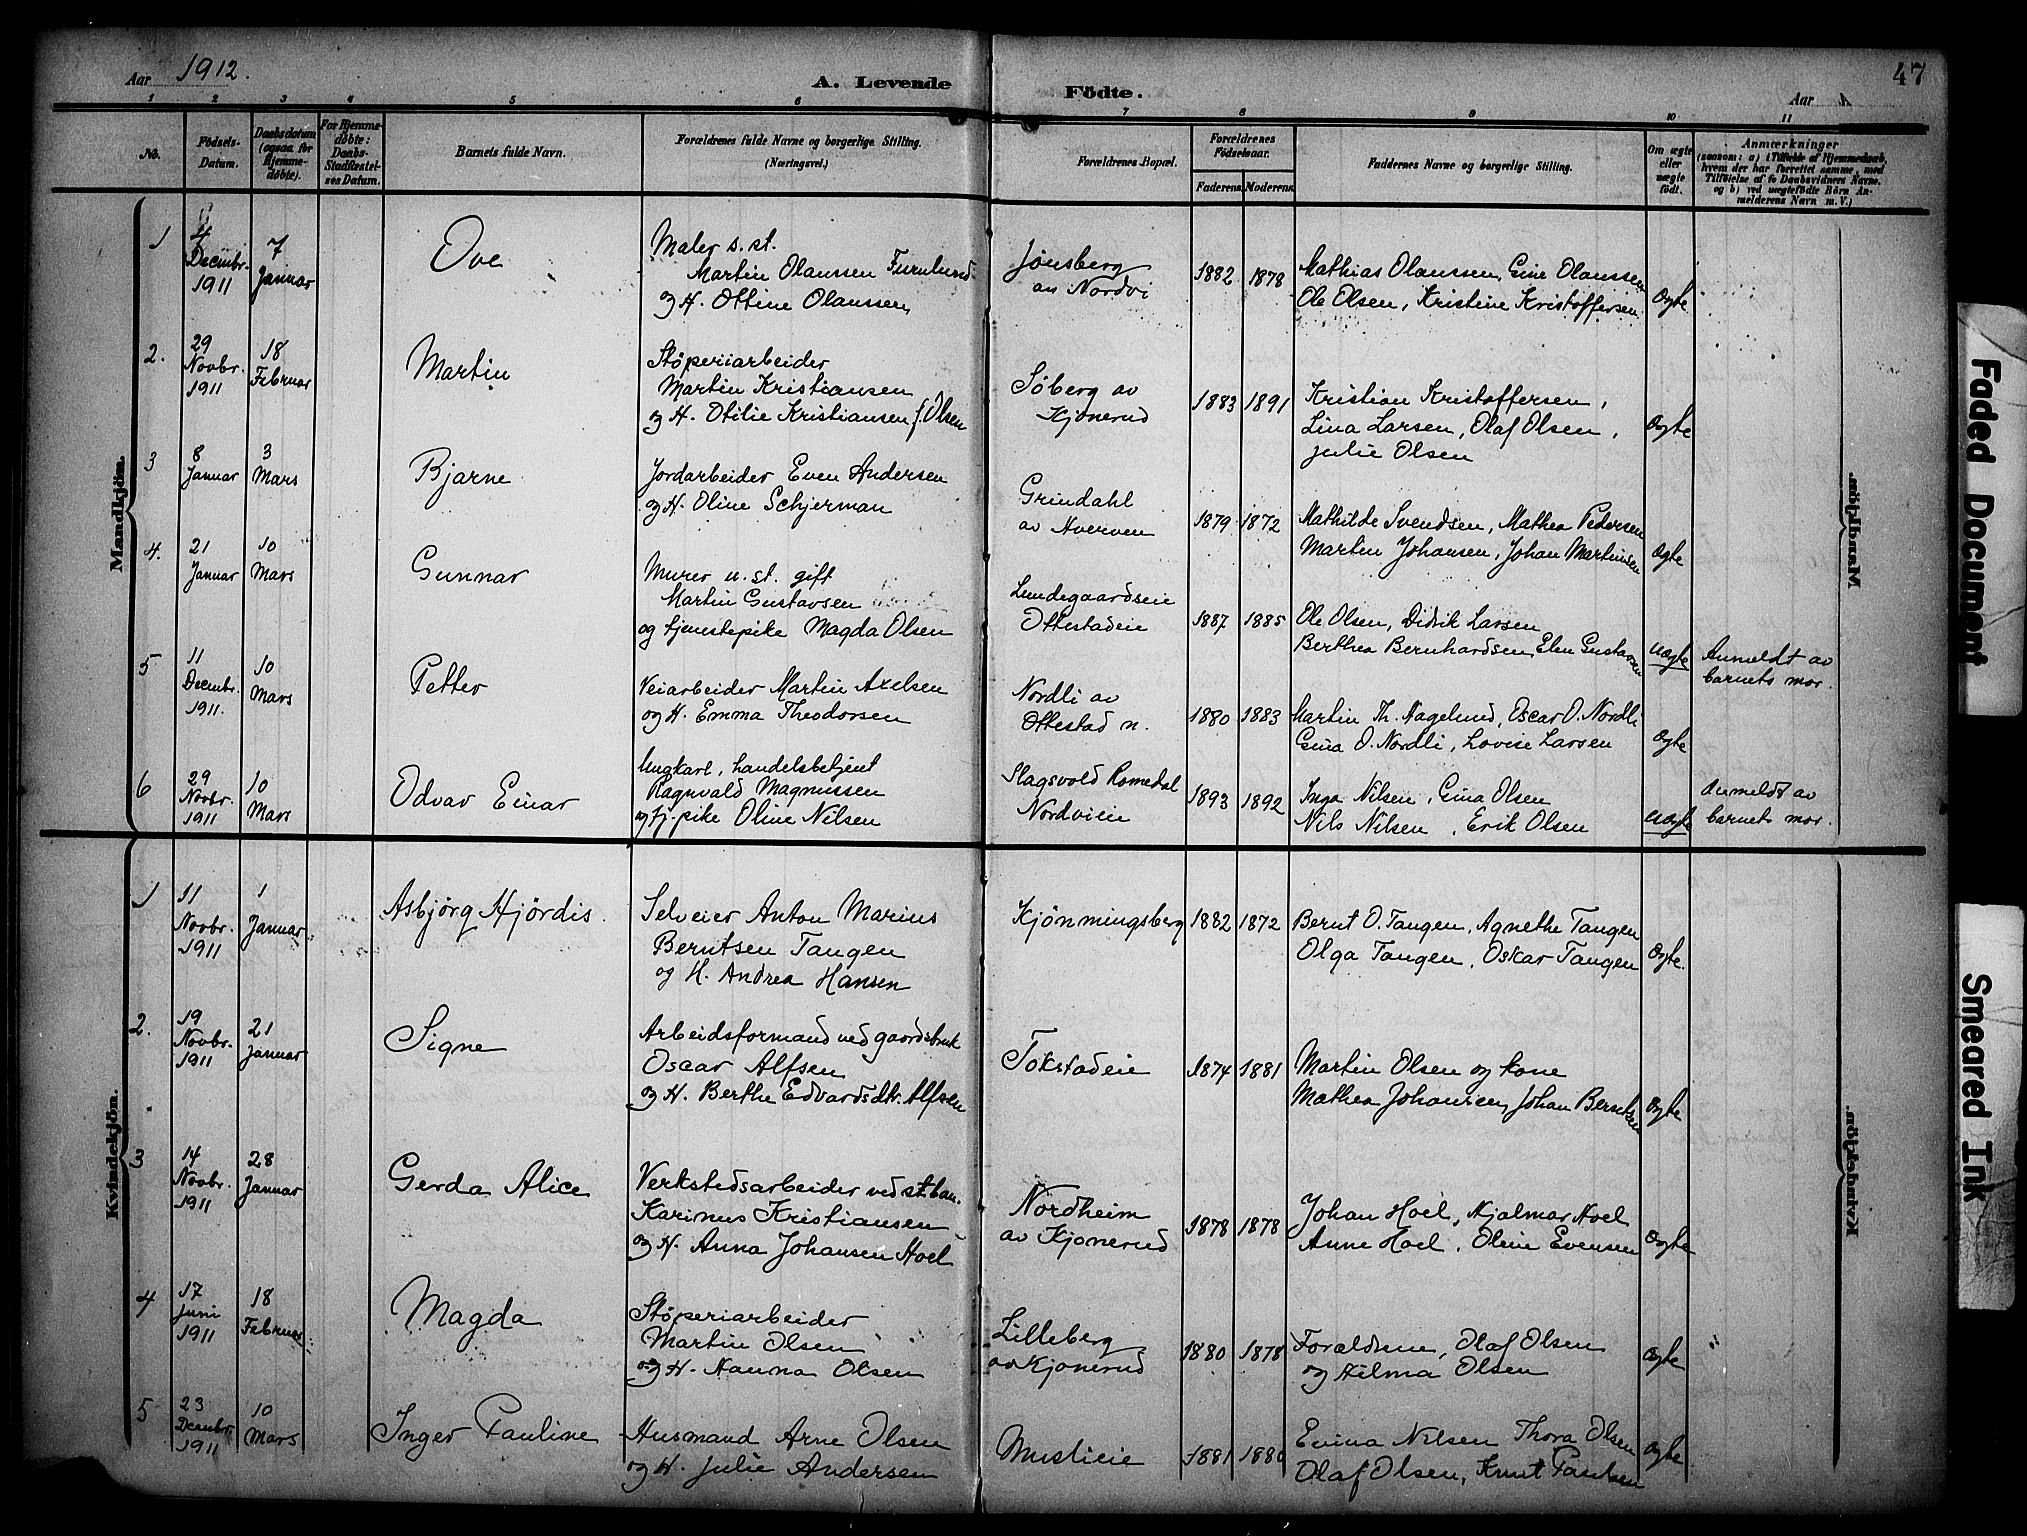 Aar 1912.
A. Levende Födte.
Aar
47
1 2 3 4 5 6 7 8 9 10 11
No.
Födsels-Datum.
Daabsdatum (ogsaa for Hjemme-døbte).
For Hjemme-døbte: Daabs-Stadfæstelses Datum.
Barnets fulde Navn.
Forældrenes fulde Navne og borgerlige Stilling.
(Næringsvei.)
Forældrenes Bopæl.
Forældrenes Födselsaar.
Faderens. Moderens.
Faddernes Navne og borgerlige Stilling.
Om ægte eller uægte födt.
Anmærkninger
(saasom: a) i Tilfælde af Hjemmedaab, hvem der har forrettet samme, med Tilföielse af to Daabsvidners Navne, og b) ved uægtefödte Börn Anmelderens Navn m. V.)
Mandkjön.
1
4 Decembr. 1911
7 Januar
Ove
Maler s. st.
Martin Olaussen Furulund
og H. Ottine Olaussen
Jønsberg
av Nordvi
1882 1878
Mathias Olaussen, Gine Olaussen
Ole Olsen, Kristine Kristoffersen
Ægte
2.
29 Novbr. 1911
18 Februar
Martin
Støperiarbeider
Martin Kristiansen
og H. Otilie Kristiansen f. Olsen
Søberg av
Kjonerud
1883 1891
Kristian Kristoffersen,
Lina Larsen, Olaf Olsen,
Julie Olsen
Ægte
3
8 Januar
3 Mars
Bjarne
Jordarbeider Even Andersen
og H. Oline Schjerman
Grindahl
av Hverven
1879 1872
Mathilde Svendsen, Mathea Pedersen
Martin Johansen, Johan Martinsen
Ægte
4.
21 Januar
10 Mars
Gunnar
Murer u. st. gift
Martin Gustavsen
og tjenestepike Magda Olsen
Lundegaardseie
Ottestadeie
1887 1885
Ole Olsen, Didrik Larsen
Berthea Bernhardsen, Elen Gustavsen
Uægte
Anmeldt av
barnets mor.
5
11 Decembr. 1911.
10 Mars
Petter
Veiarbeider Martin Axelsen
og H. Emma Theodorsen
Nordli av
Ottestad n.
1880 1883
Martin Th. Hagelund, Oscar O. Nordli
Gina O. Nordli, Lovise Larsen
Ægte
6
29 Novbr. 1911
10 Mars
Odvar Einar
Ungkarl, handelsbetjent
Ragnvald Magnussen
og tj.pike Oline Nilsen
Slagsvold Romedal
Nordvieie
1893 1892
Inga Nilsen, Gina Olsen
Nils Nilsen, Erik Olsen
Uægte
Anmeldt av
barnets mor.
Mandkjön.
Kvindekjön.
1
11 Novbr. 1911
1 Januar
Asbjørg Hjørdis.
Selveier Anton Marius
Berntsen Tangen
og H. Andrea Hansen
Kjønmingsberg
1882 1872
Bernt O. Tangen, Agnethe Tangen
Olga Tangen, Oskar Tangen
Ægte.
2.
19 Novbr. 1911
21 Januar
Signe
Arbeidsformand ved gaardsbruk
Oscar Alfsen
og H. Berthe Edvardsdtr. Alfsen
Tokstadeie
1874 1881
Martin Olsen og kone
Mathea Johansen, Johan Berntsen
Ægte
3
14 Novbr. 1911
28 Januar
Gerda Alice
Verkstedsarbeider ved st.ban.
Karinus Kristiansen
og H. Anna Johansen Hoel
Nordheim
av Kjonerud
1878 1878
Johan Hoel, Hjalmar Hoel
Anne Hoel, Oline Evensen
Ægte
4
17 Juni 1911
18 Februar
Magda
Støperiarbeider
Martin Olsen
og H. Hanna Olsen
Lilleberg
av Kjonerud
1880 1878
Foraldrene, Olaf Olsen
og Hilma Olsen
Ægte
5
23 Decembr. 1911
10 Mars
Inger Pauline
Husmand Arne Olsen
og H. Julie Andersen
Muslieie
1881 1880
Emma Nilsen Thora Olsen
Olaf Olsen, Knut Paulsen
Ægte
Kvindekjön.
Faded Document
Smeared Ink